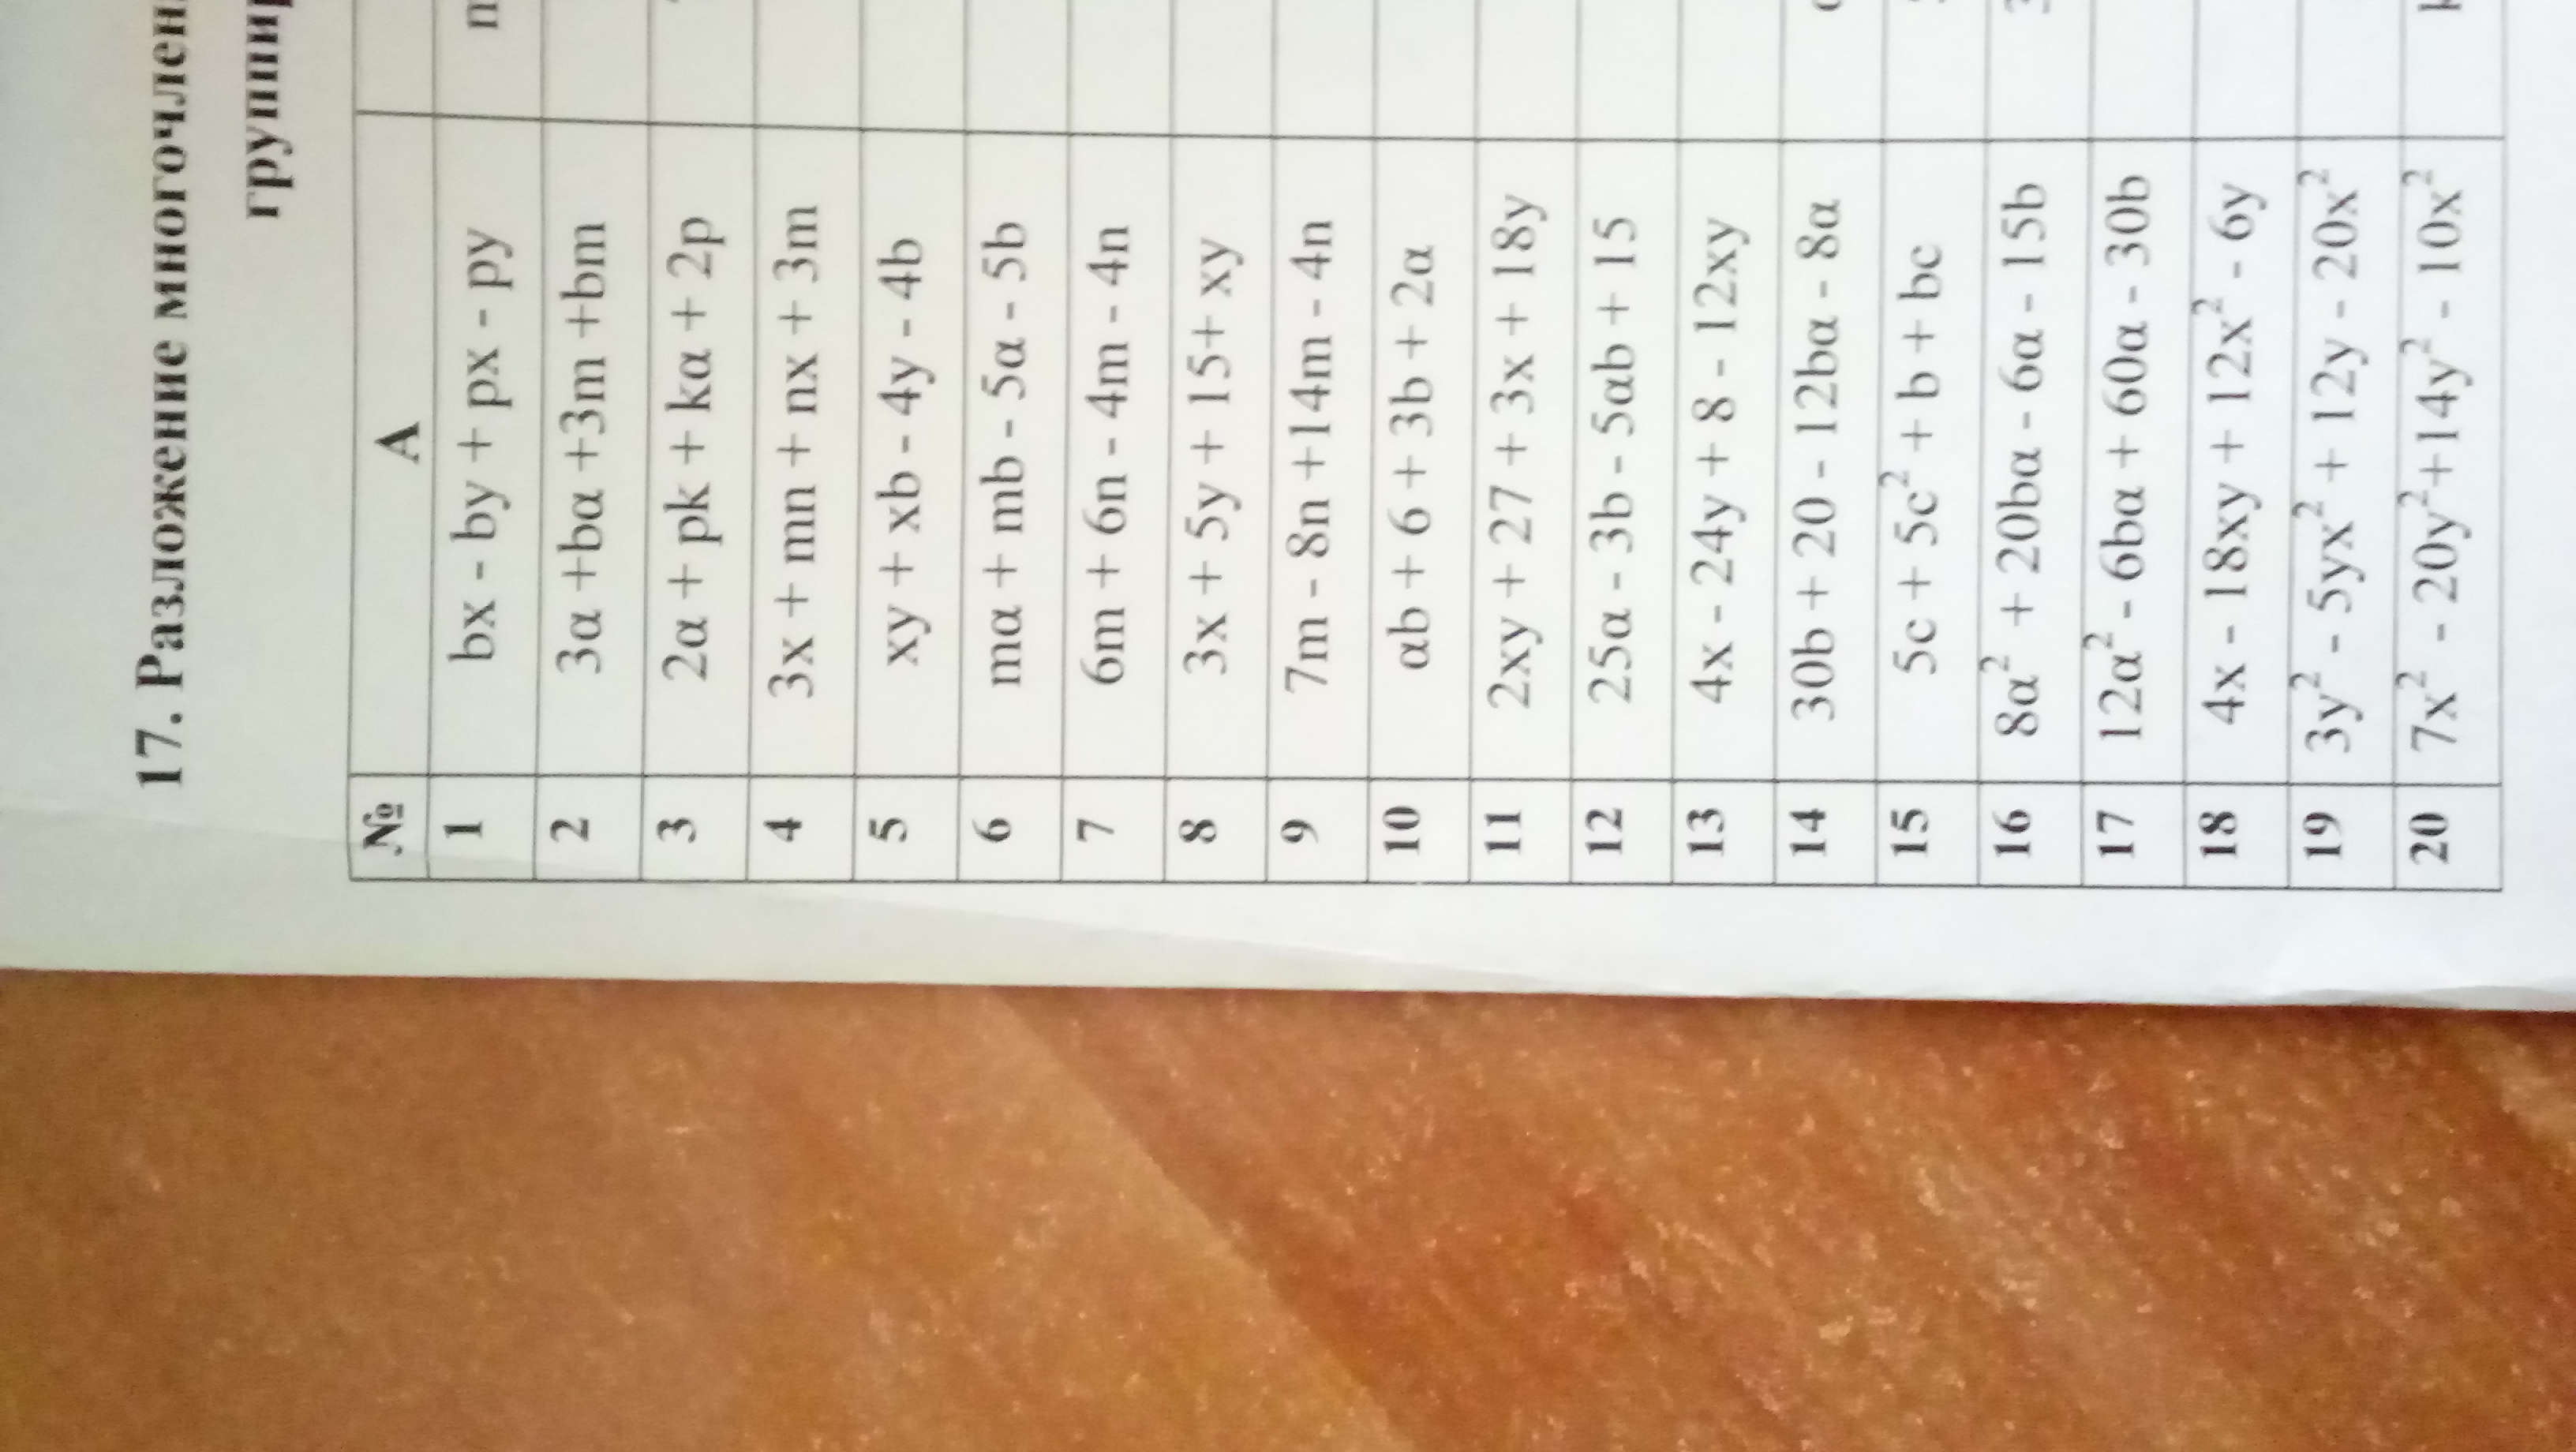 17. Разложение
№ A
1 bx - by + px - py
2 3α +bα +3m +bm
3 2α + pk + kα + 2p
4 3x + mn + nx + 3m
5 xy + xb - 4y - 4b
6 mα + mb - 5α - 5b
7 6m + 6n - 4m - 4n
8 3x + 5y + 15+ xy
9 7m - 8n +14m - 4n
10 αb + 6 + 3b + 2α
11 2xy + 27 + 3x + 18y
12 25α - 3b - 5αb + 15
13 4x - 24y + 8 - 12xy
14 30b + 20 - 12bα - 8α
15 5c + 5c² + b + bc
16 8α² + 20bα - 6α - 15b
17 12α² - 6bα + 60α - 30b
18 4x - 18xy + 12x² - 6y
19 3y² - 5yx² + 12y - 20x²
20 7x² - 20y²+14y² - 10x²